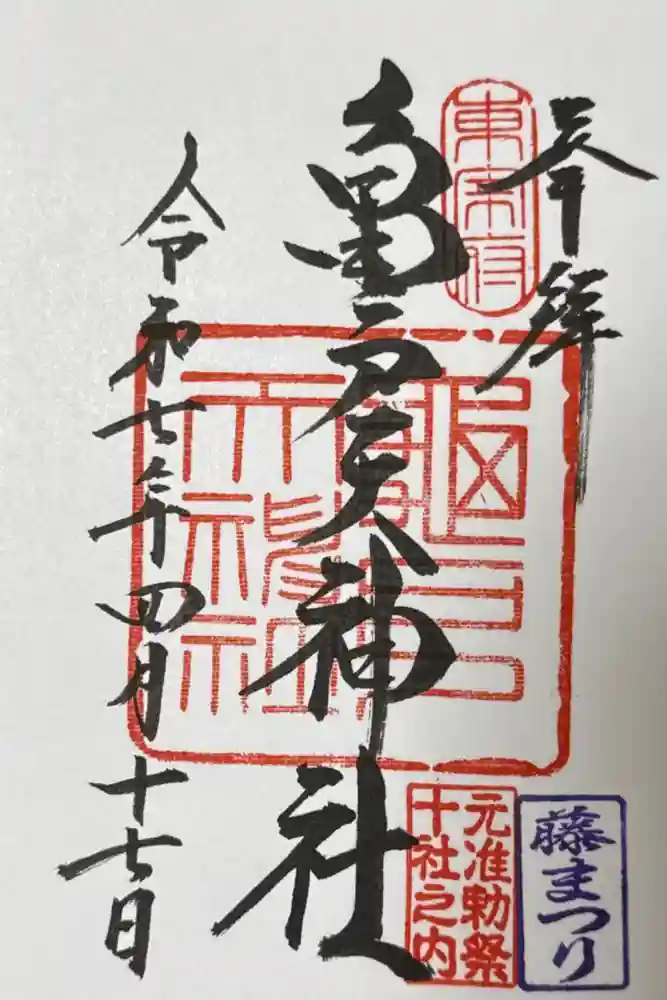 奉拝
東宰府
亀戸天神社
亀戸天神社
令和七年四月十七日
元准勅祭
十社之内
藤まつり